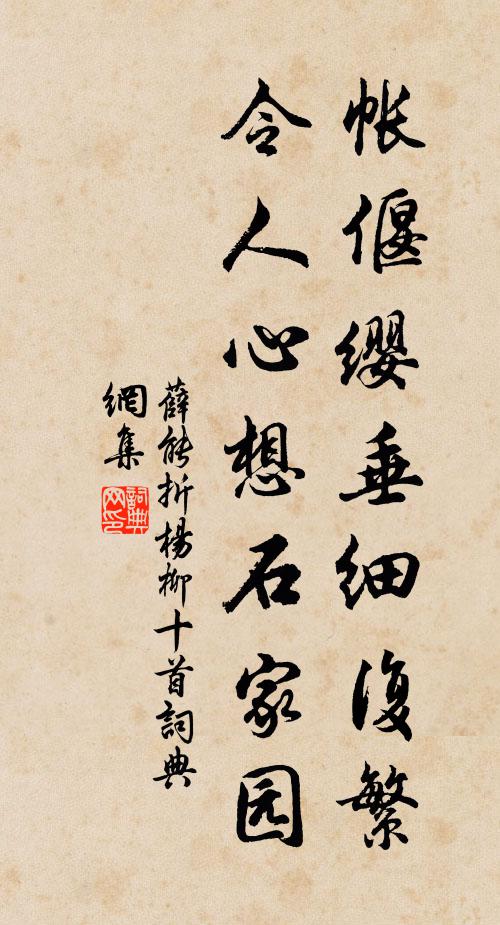 帐偃缨垂细复繁
令人心想石家园
薛能折杨柳十首詞典
網集
詞典网印